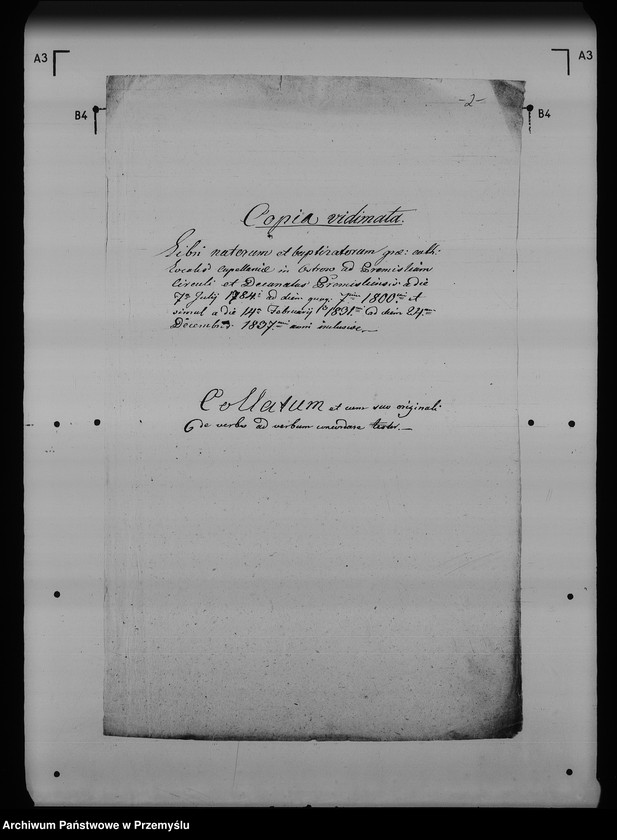 A3
A3
B4
B4
-2-
Copia vidimata.
Libri natorum et baptizatorum græ: cath:
Localis Capellaniæ in Ostrow ad Premisliam
Circuli et Decanatus Premisliensis a die
7ª Julij 1784ª ad diem 7ª 1800ᵐ et
simul a die 14ª Februarij 1831ᵐ ad diem 24ᵐ
Decembris 1837ᵐⁱ anni inclusive.
Collatum et cum suo originali
de verbo ad verbum concordare testor.
Archiwum Państwowe w Przemyślu